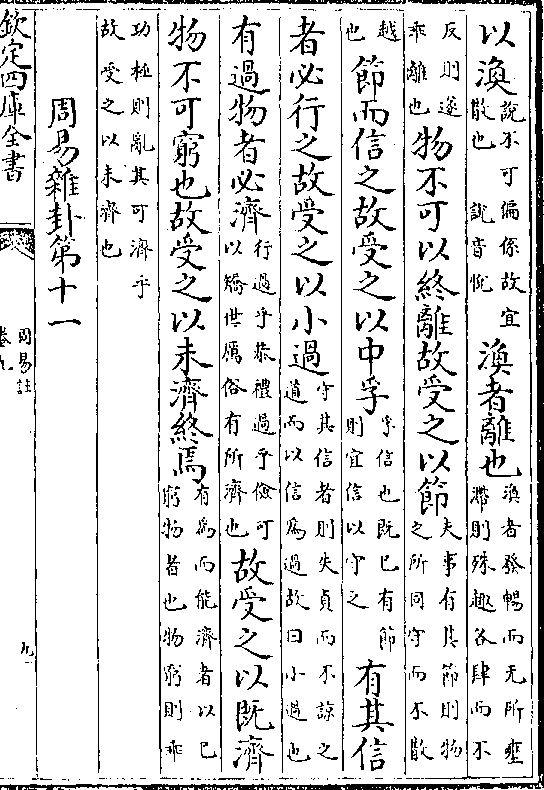 以渙說不可偏係故宜散也　說音悅渙者離也渙者發暢而无所壅滯則殊趣各肆而不
反則遂乖離也物不可以終離故受之以節夫事有其節則物之所同守而不散
越也節而信之故受之以中孚孚信也既已有節則宜信以守之有其信
者必行之故受之以小過守其信者則失貞而不諒之道而以信為過故曰小過也
有過物者必濟行過乎恭禮過乎儉可以矯世厲俗有所濟也故受之以既濟
物不可窮也故受之以未濟終焉有為而能濟者以已窮物者也物窮則乖
功極則亂其可濟乎故受之以未濟也
周易雜卦第十一
欽定四庫全書
周易註
卷九
九